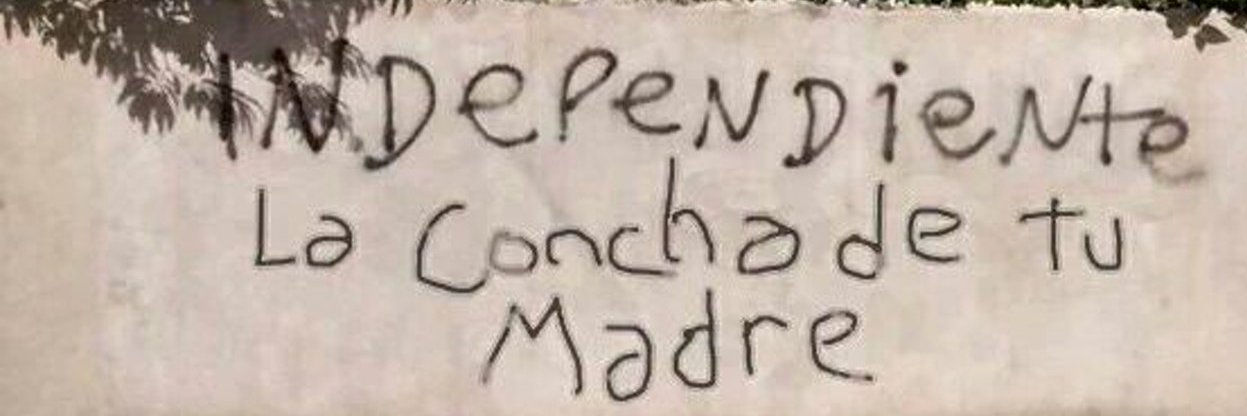 INDePeNDieNte
La Concha de tu
Madre